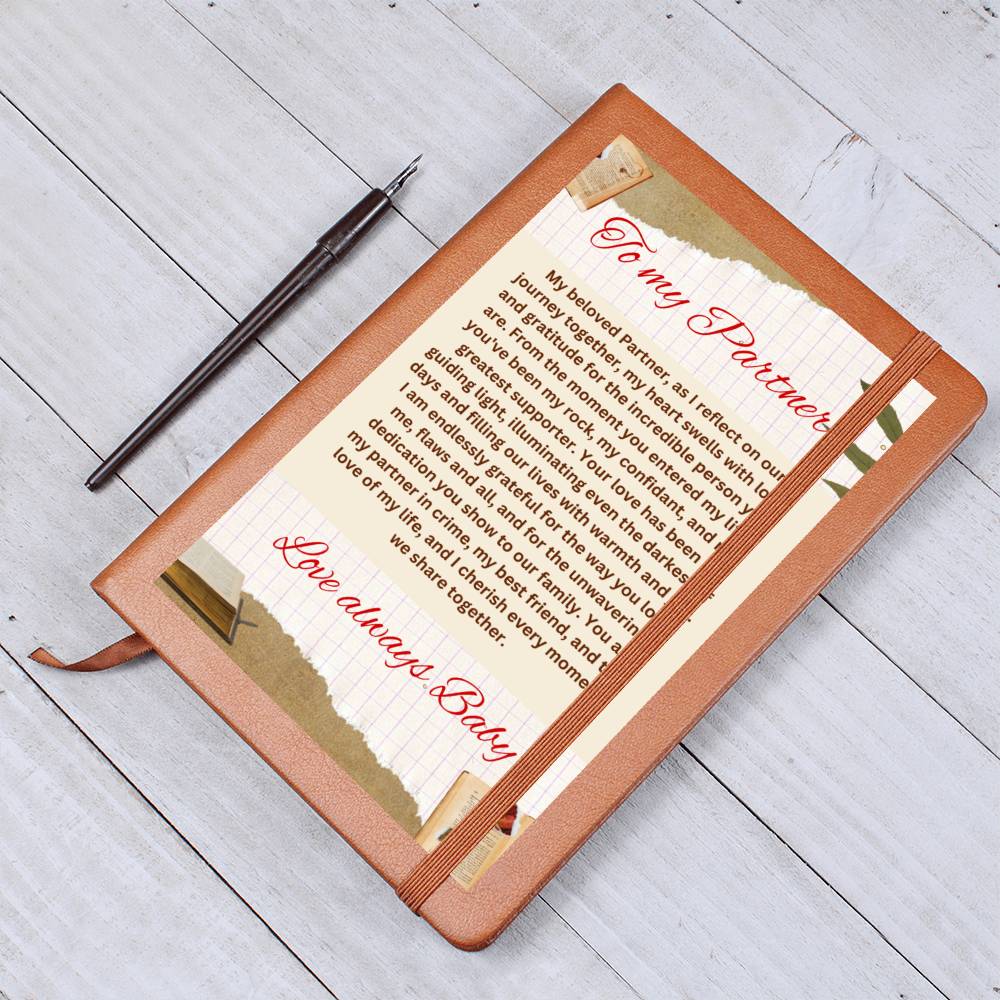 To my Partner
My beloved Partner, as I reflect on our
journey together, my heart swells with lo
and gratitude for the incredible person y
are. From the moment you entered my li
you've been my rock, my confidant, and
greatest supporter. Your love has been
guiding light, illuminating even the darkes
days and filling our lives with warmth and
I am endlessly grateful for the way you lo
me, flaws and all, and for the unwaverin
dedication you show to our family. You a
my partner in crime, my best friend, and t
love of my life, and I cherish every mome
we share together.
Love always, Baby